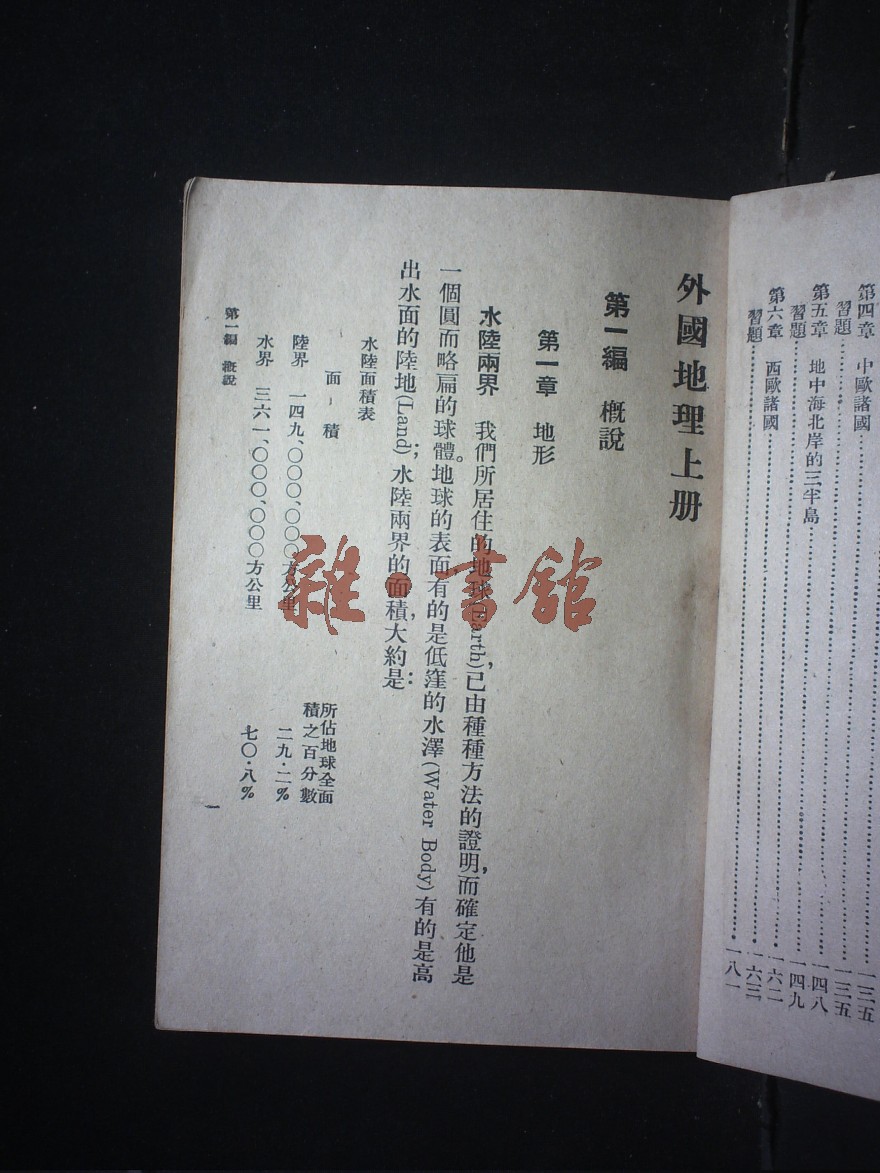 第四章　中歐諸國……一三五
習題……一三五
第五章　地中海北岸的三半島……一四八
習題……一四九
第六章　西歐諸國……一六二
習題……一八一
外國地理上册
第一編　概說
第一章　地形
水陸兩界　我們所居住的地球(Earth)，已由種種方法的證明，而確定他是
一個圓而略扁的球體。地球的表面，有的是低窪的水澤(Water Body)有的是高
出水面的陸地(Land)；水陸兩界的面積，大約是：
水陸面積表
面積　所佔地球全面積之百分數
陸界　一四九、〇〇〇、〇〇〇方公里　二九・二％
水界　三六一、〇〇〇、〇〇〇方公里　七〇・八％
第一編　概說　一
雜・書館